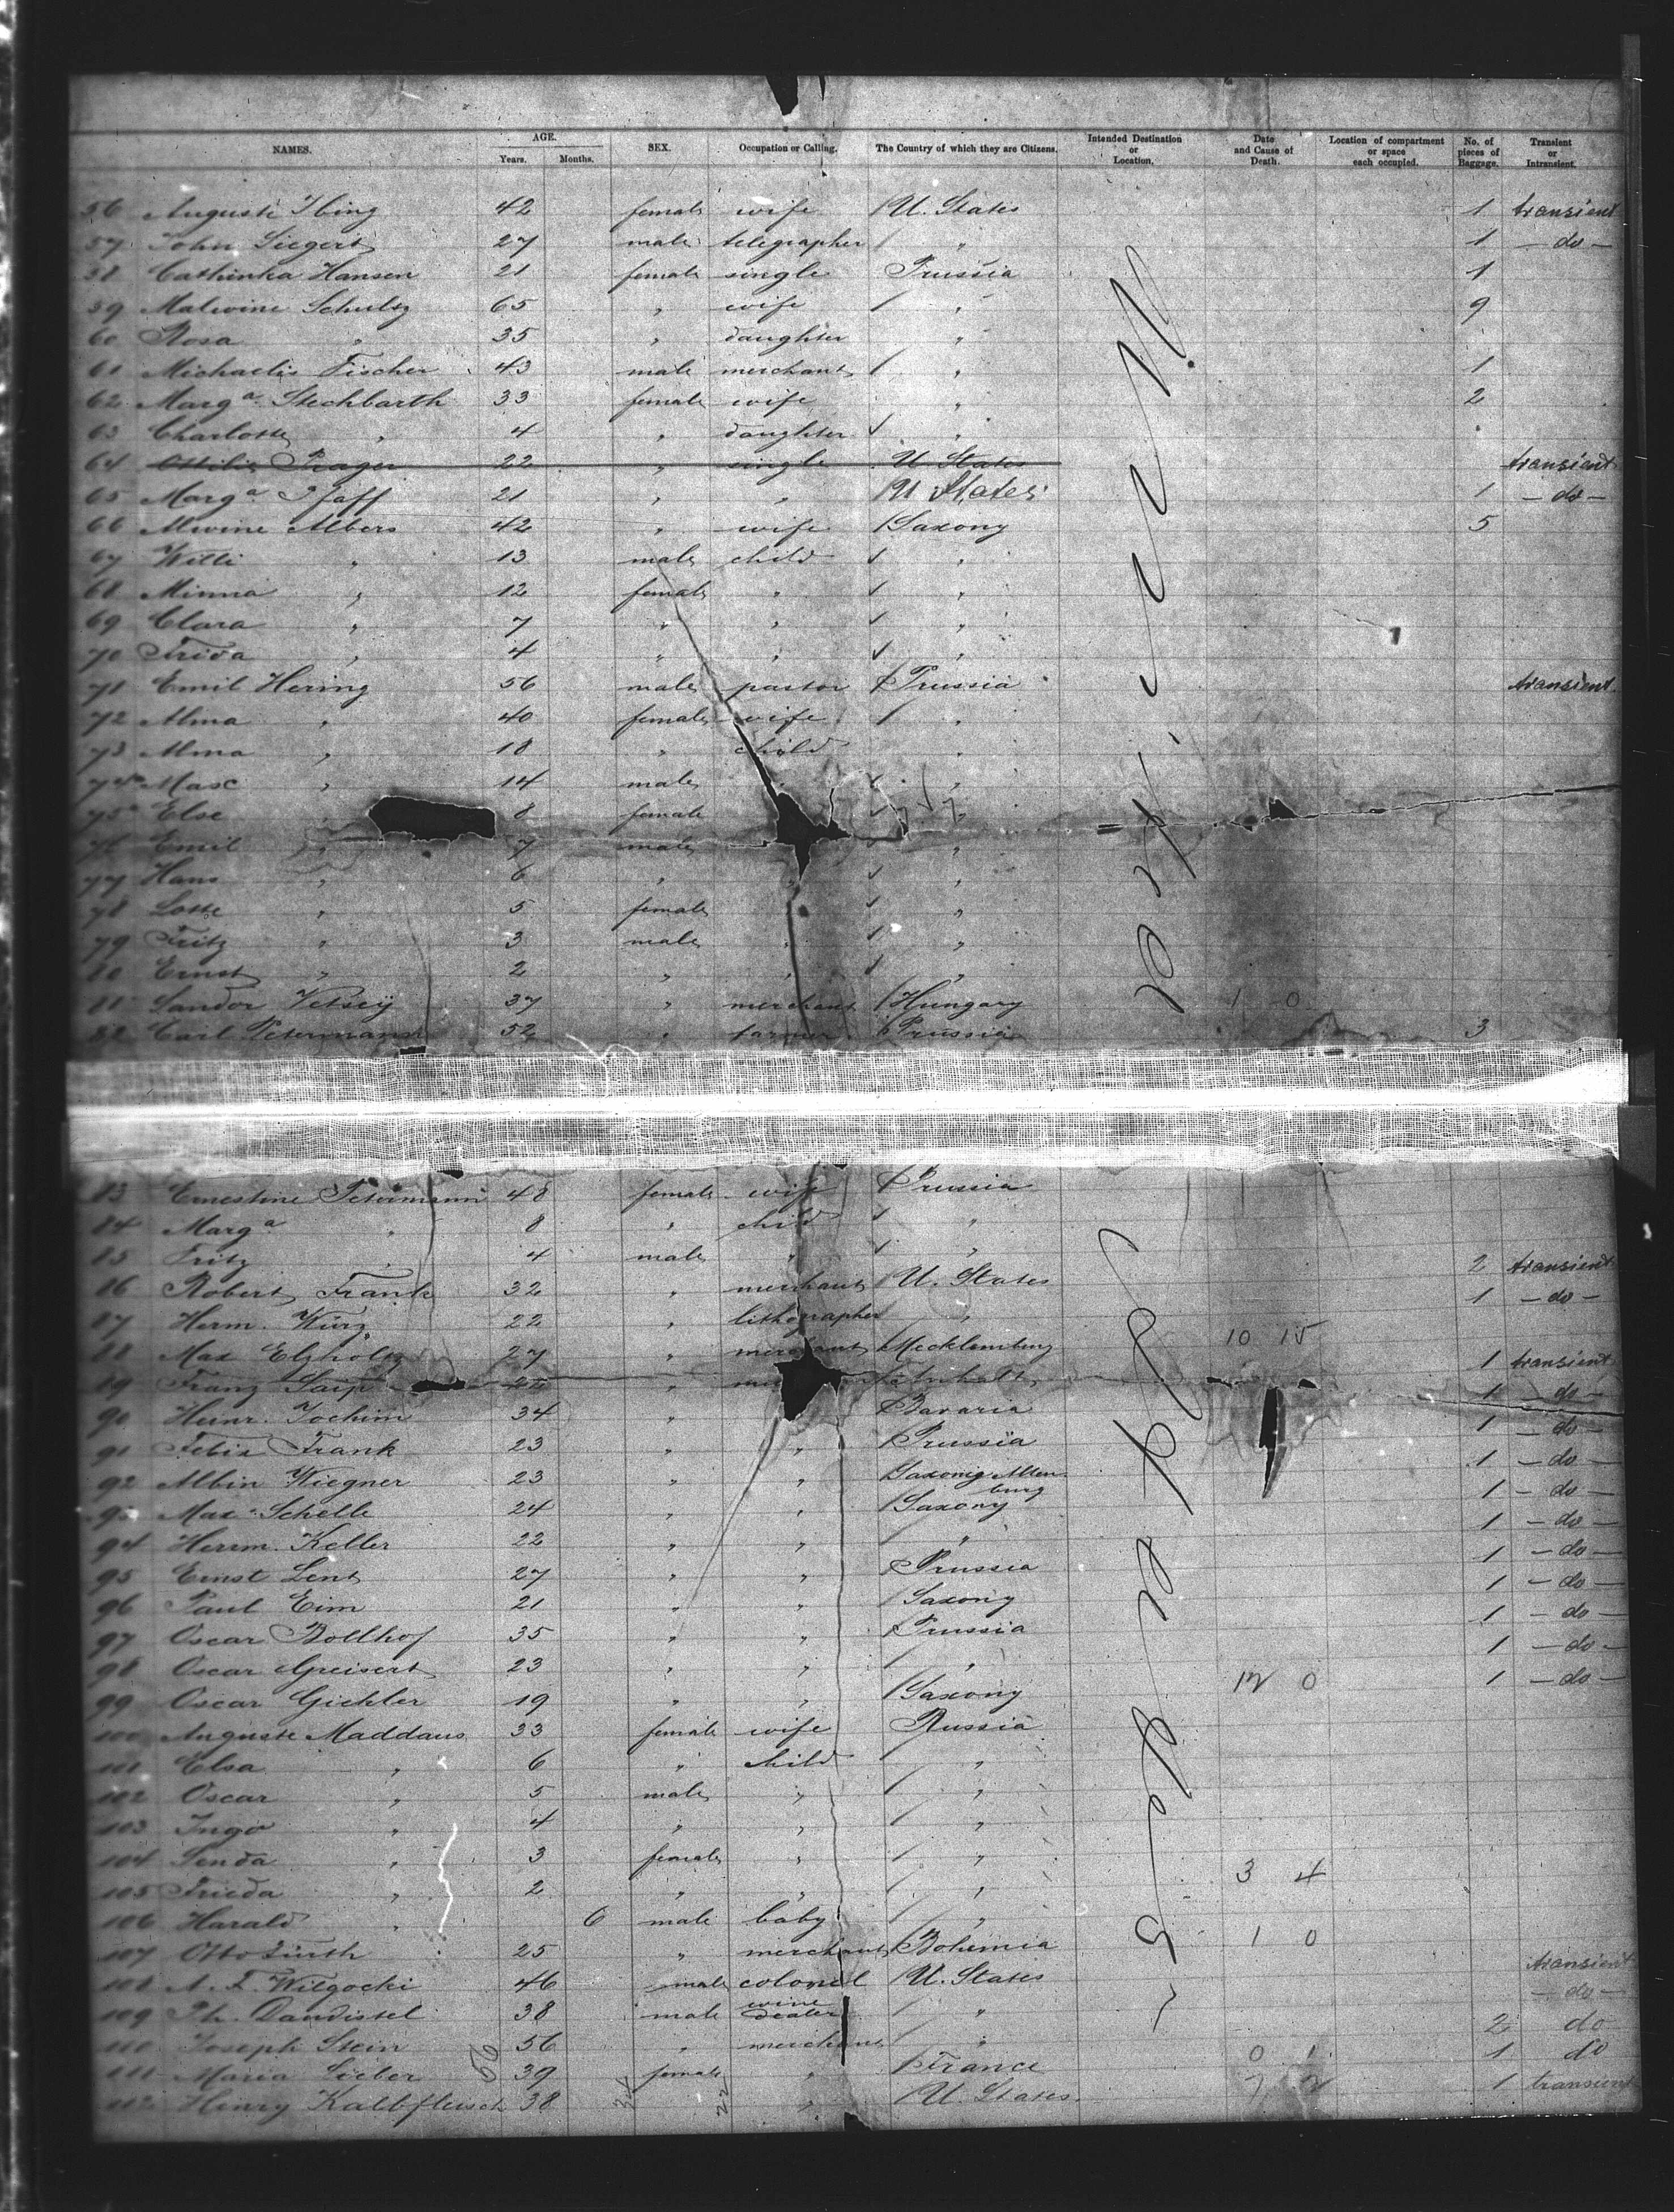 NAMES. AGE. Years. Months. SEX. Occupation or Calling. The Country of which they are Citizens. Intended Destination or Location. Date and Cause of Death. Location of compartment or space each occupied. No. of pieces of Baggage. Transient or Intransient.
56 Auguste Ibing 42 female wife U. States 1 transient
57 John Siegert 27 male telegrapher " 1 — do —
58 Cathinka Hansen 21 female single Prussia 1
59 Malwine Schultz 65 " wife " 9
60 Rosa " 35 " daughter "
61 Michaelis Fischer 43 male merchant " 1
62 Marga Stechbarth 33 female wife " 2
63 Charlotte " 4 " daughter "
64 Ottilie Prager 22 " single U. States transient
65 Marga Pfaff 21 " " U States 1 — do —
66 Alwine Albers 42 " wife Saxony 5
67 Willi " 13 male child "
68 Minna " 12 female " "
69 Clara " 7 " " "
70 Frida " 4 " " "
71 Emil Hering 56 male pastor Prussia transient
72 Alma " 40 female wife "
73 Alma " 18 " child "
74 Max " 14 male "
75 Else " 8 female "
76 Emil " 7 male "
77 Hans " 6 " " "
78 Lotte " 5 female "
79 Fritz " 3 male " "
80 Ernst " 2 " " "
81 Sandor Vetsey 37 " merchant Hungary 1 0
82 Carl Petermann 52 " farmer Prussia 3
83 Ernestine Petermann 48 female wife Prussia
84 Marga " 8 " child "
85 Fritz " 4 male " "
86 Robert Frank 32 " merchant U. States 2 transient
87 Herm. Kurz 22 " lithographer " 1 — do —
88 Max Elzholtz 27 " merchant Mecklemburg 10 15
89 Franz " Anhalt 1 transient
90 Heinr. Jochim 34 " Bavaria 1 — do —
91 Felix Frank 23 " " Prussia 1 — do —
92 Albin Wiegner 23 " " Saxonig Altenburg 1 — do —
93 Max Schelle 24 " " Saxony 1 — do —
94 Herrm. Keller 22 " " " 1 — do —
95 Ernst Lent 27 " " Prussia 1 — do —
96 Paul Eim 21 " " Saxony 1 — do —
97 Oscar Bollhof 35 " " Prussia 1 — do —
98 Oscar Greisert 23 " " " 1 — do —
99 Oscar Gichler 19 " " Saxony 12 0 1 — do —
100 Auguste Maddaus 33 female wife Russia
101 Elsa " 6 " child "
102 Oscar " 5 male " "
103 Ingo " 4 " " "
104 Senda " 3 female " "
105 Frieda " 2 " " " 3 4
106 Harald " 6 male baby "
107 Otto 25 " merchant Bohemia 1 0
108 A. F. Wilgocki 46 male colonel U. States transient
109 Ph. Dandistel 38 male wine dealer " — do —
110 Joseph Stein 56 " merchant " 2 do
111 Maria Sieber 39 female " France 0 1 1 do
112 Henry Kalbfleisch 38 " U. States 7 2 1 transient
56 34 22